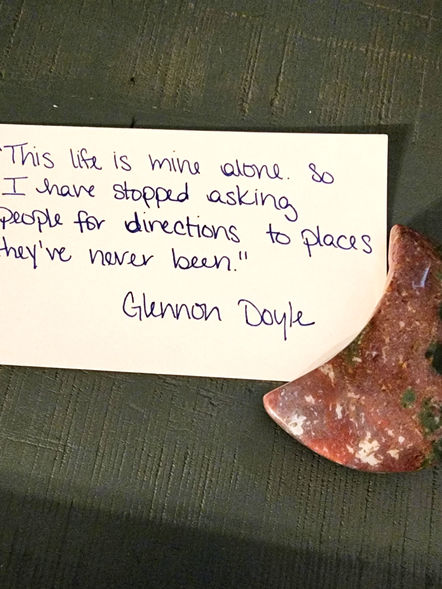 "This life is mine alone. So
I have stopped asking
people for directions to places
they've never been."
Glennon Doyle